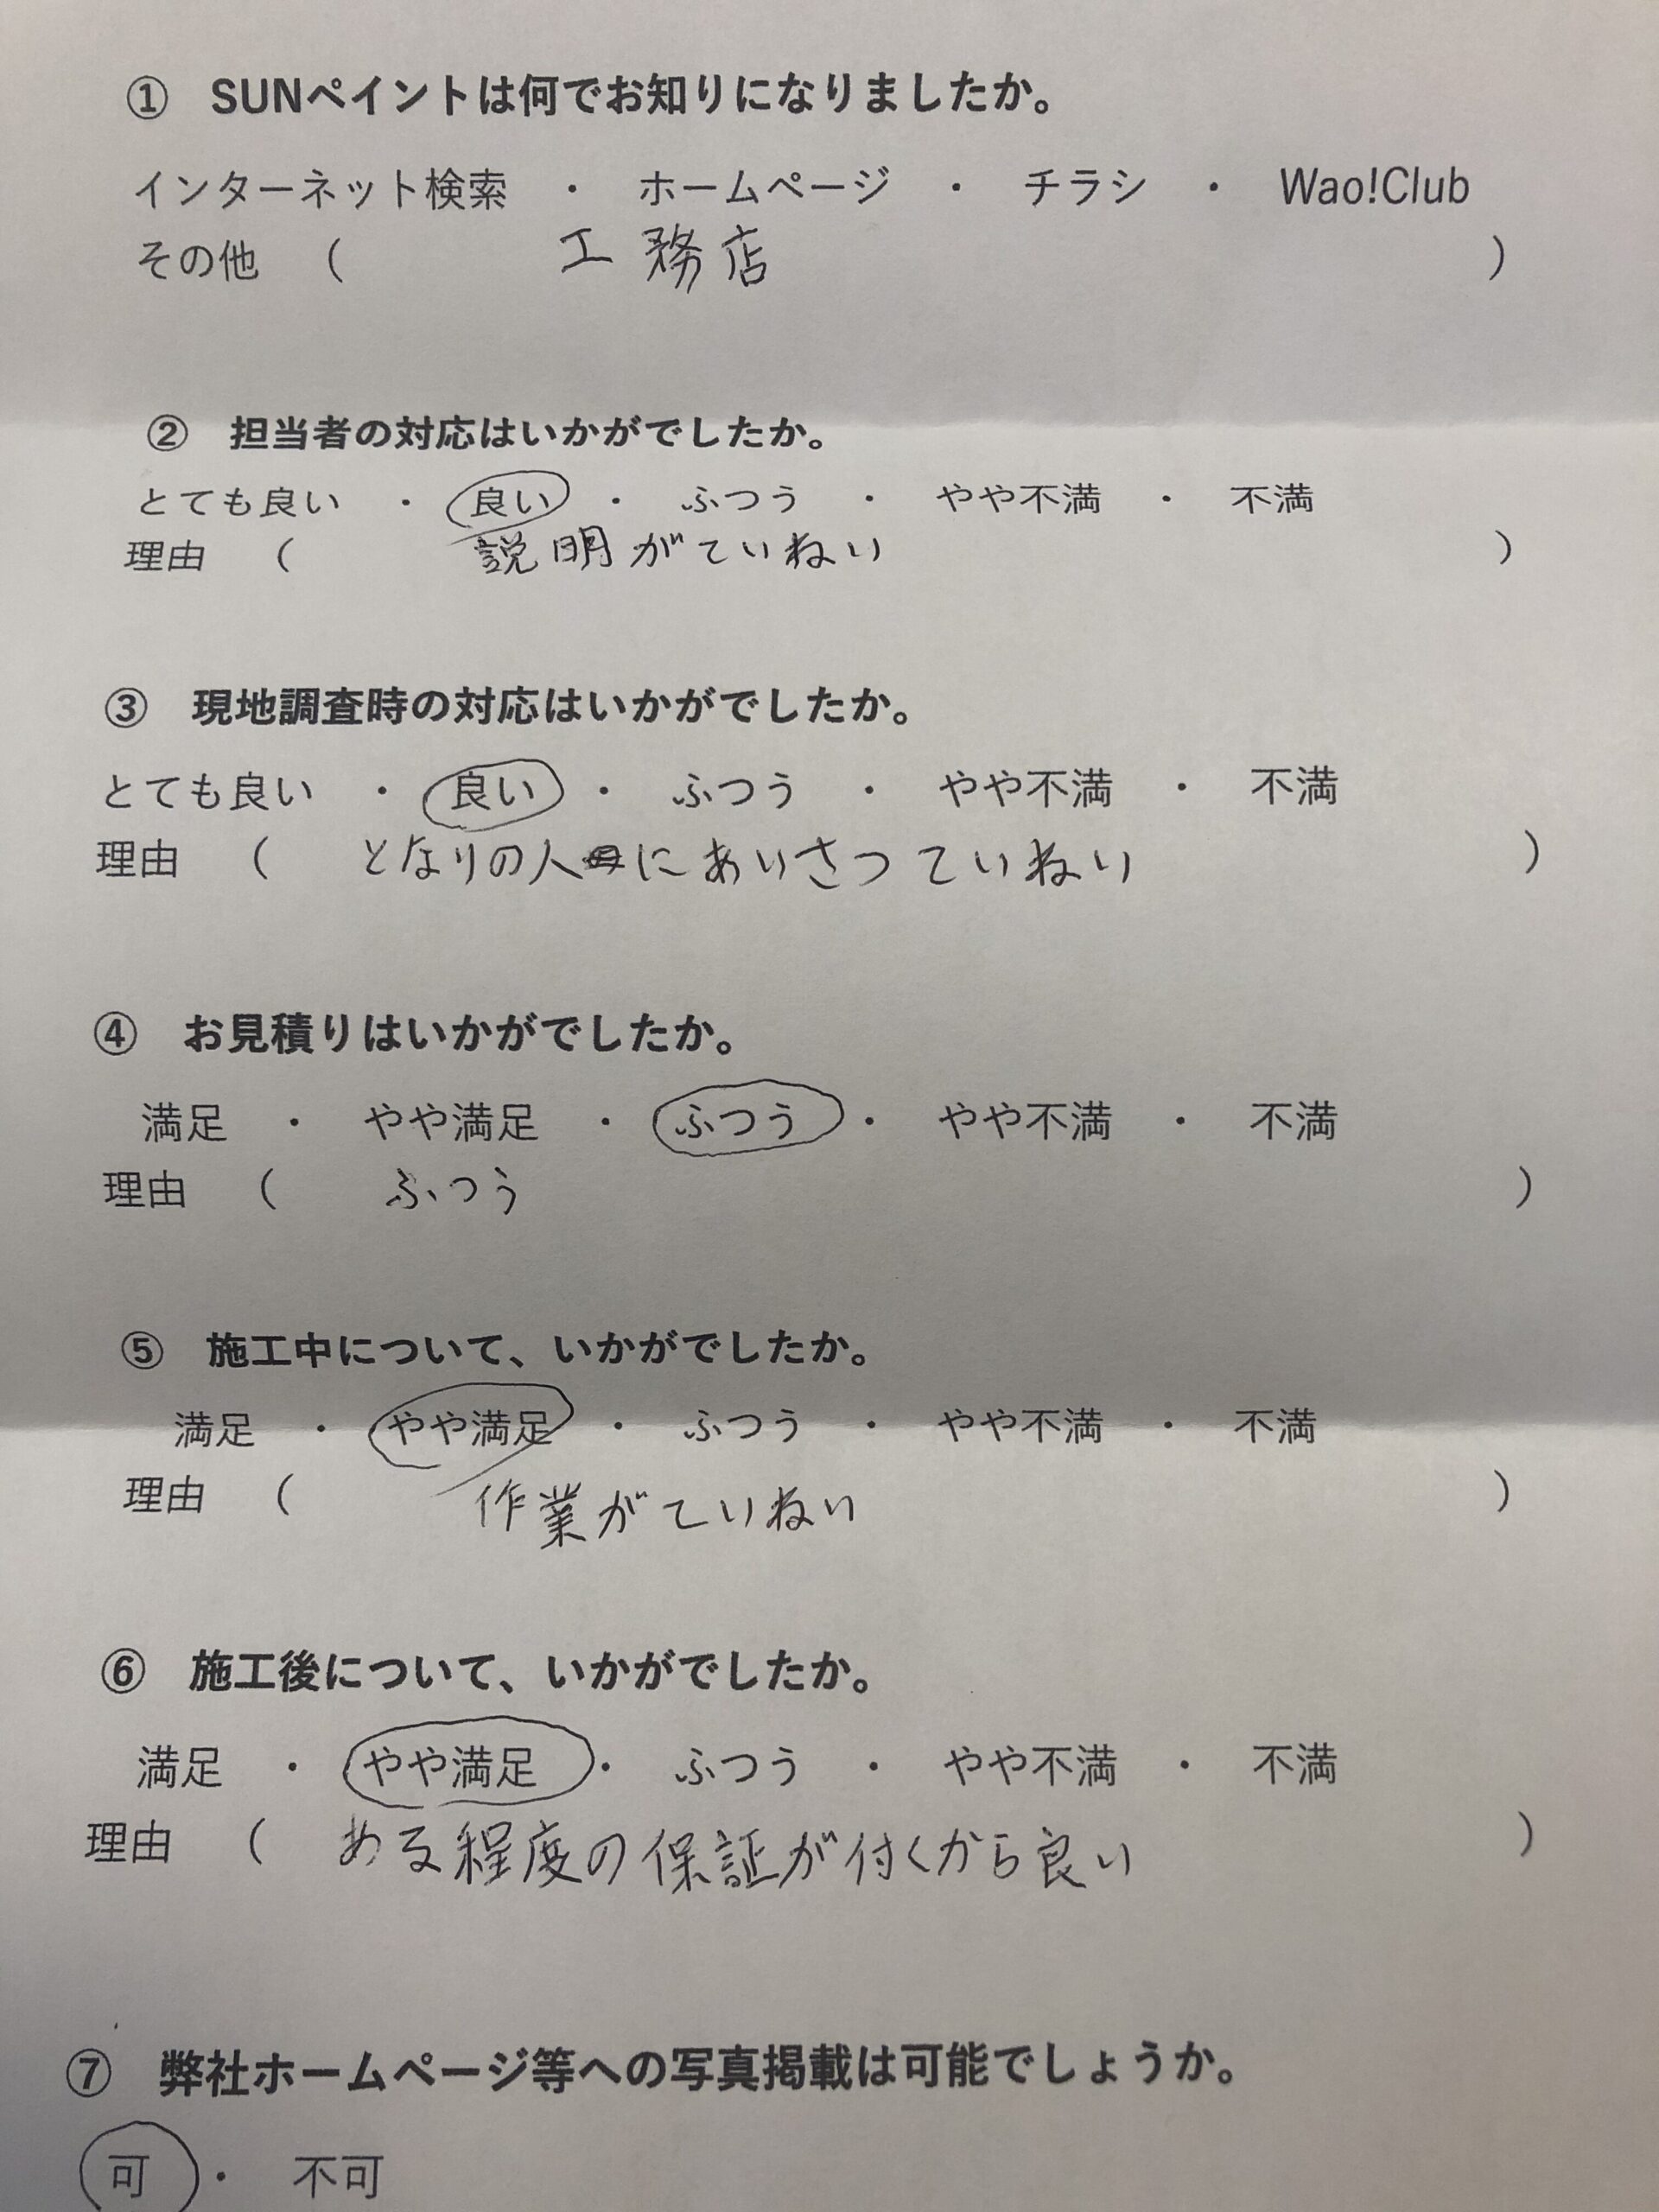 ① SUNペイントは何でお知りになりましたか。
インターネット検索 ・ ホームページ ・ チラシ ・ Wao!Club
その他 ( 工務店 )
② 担当者の対応はいかがでしたか。
とても良い ・ 良い ・ ふつう ・ やや不満 ・ 不満
理由 ( 説明がていねい )
③ 現地調査時の対応はいかがでしたか。
とても良い ・ 良い ・ ふつう ・ やや不満 ・ 不満
理由 ( となりの人にあいさつていねい )
④ お見積りはいかがでしたか。
満足 ・ やや満足 ・ ふつう ・ やや不満 ・ 不満
理由 ( ふつう )
⑤ 施工中について、いかがでしたか。
満足 ・ やや満足 ・ ふつう ・ やや不満 ・ 不満
理由 ( 作業がていねい )
⑥ 施工後について、いかがでしたか。
満足 ・ やや満足 ・ ふつう ・ やや不満 ・ 不満
理由 ( ある程度の保証が付くから良い )
⑦ 弊社ホームページ等への写真掲載は可能でしょうか。
可 ・ 不可